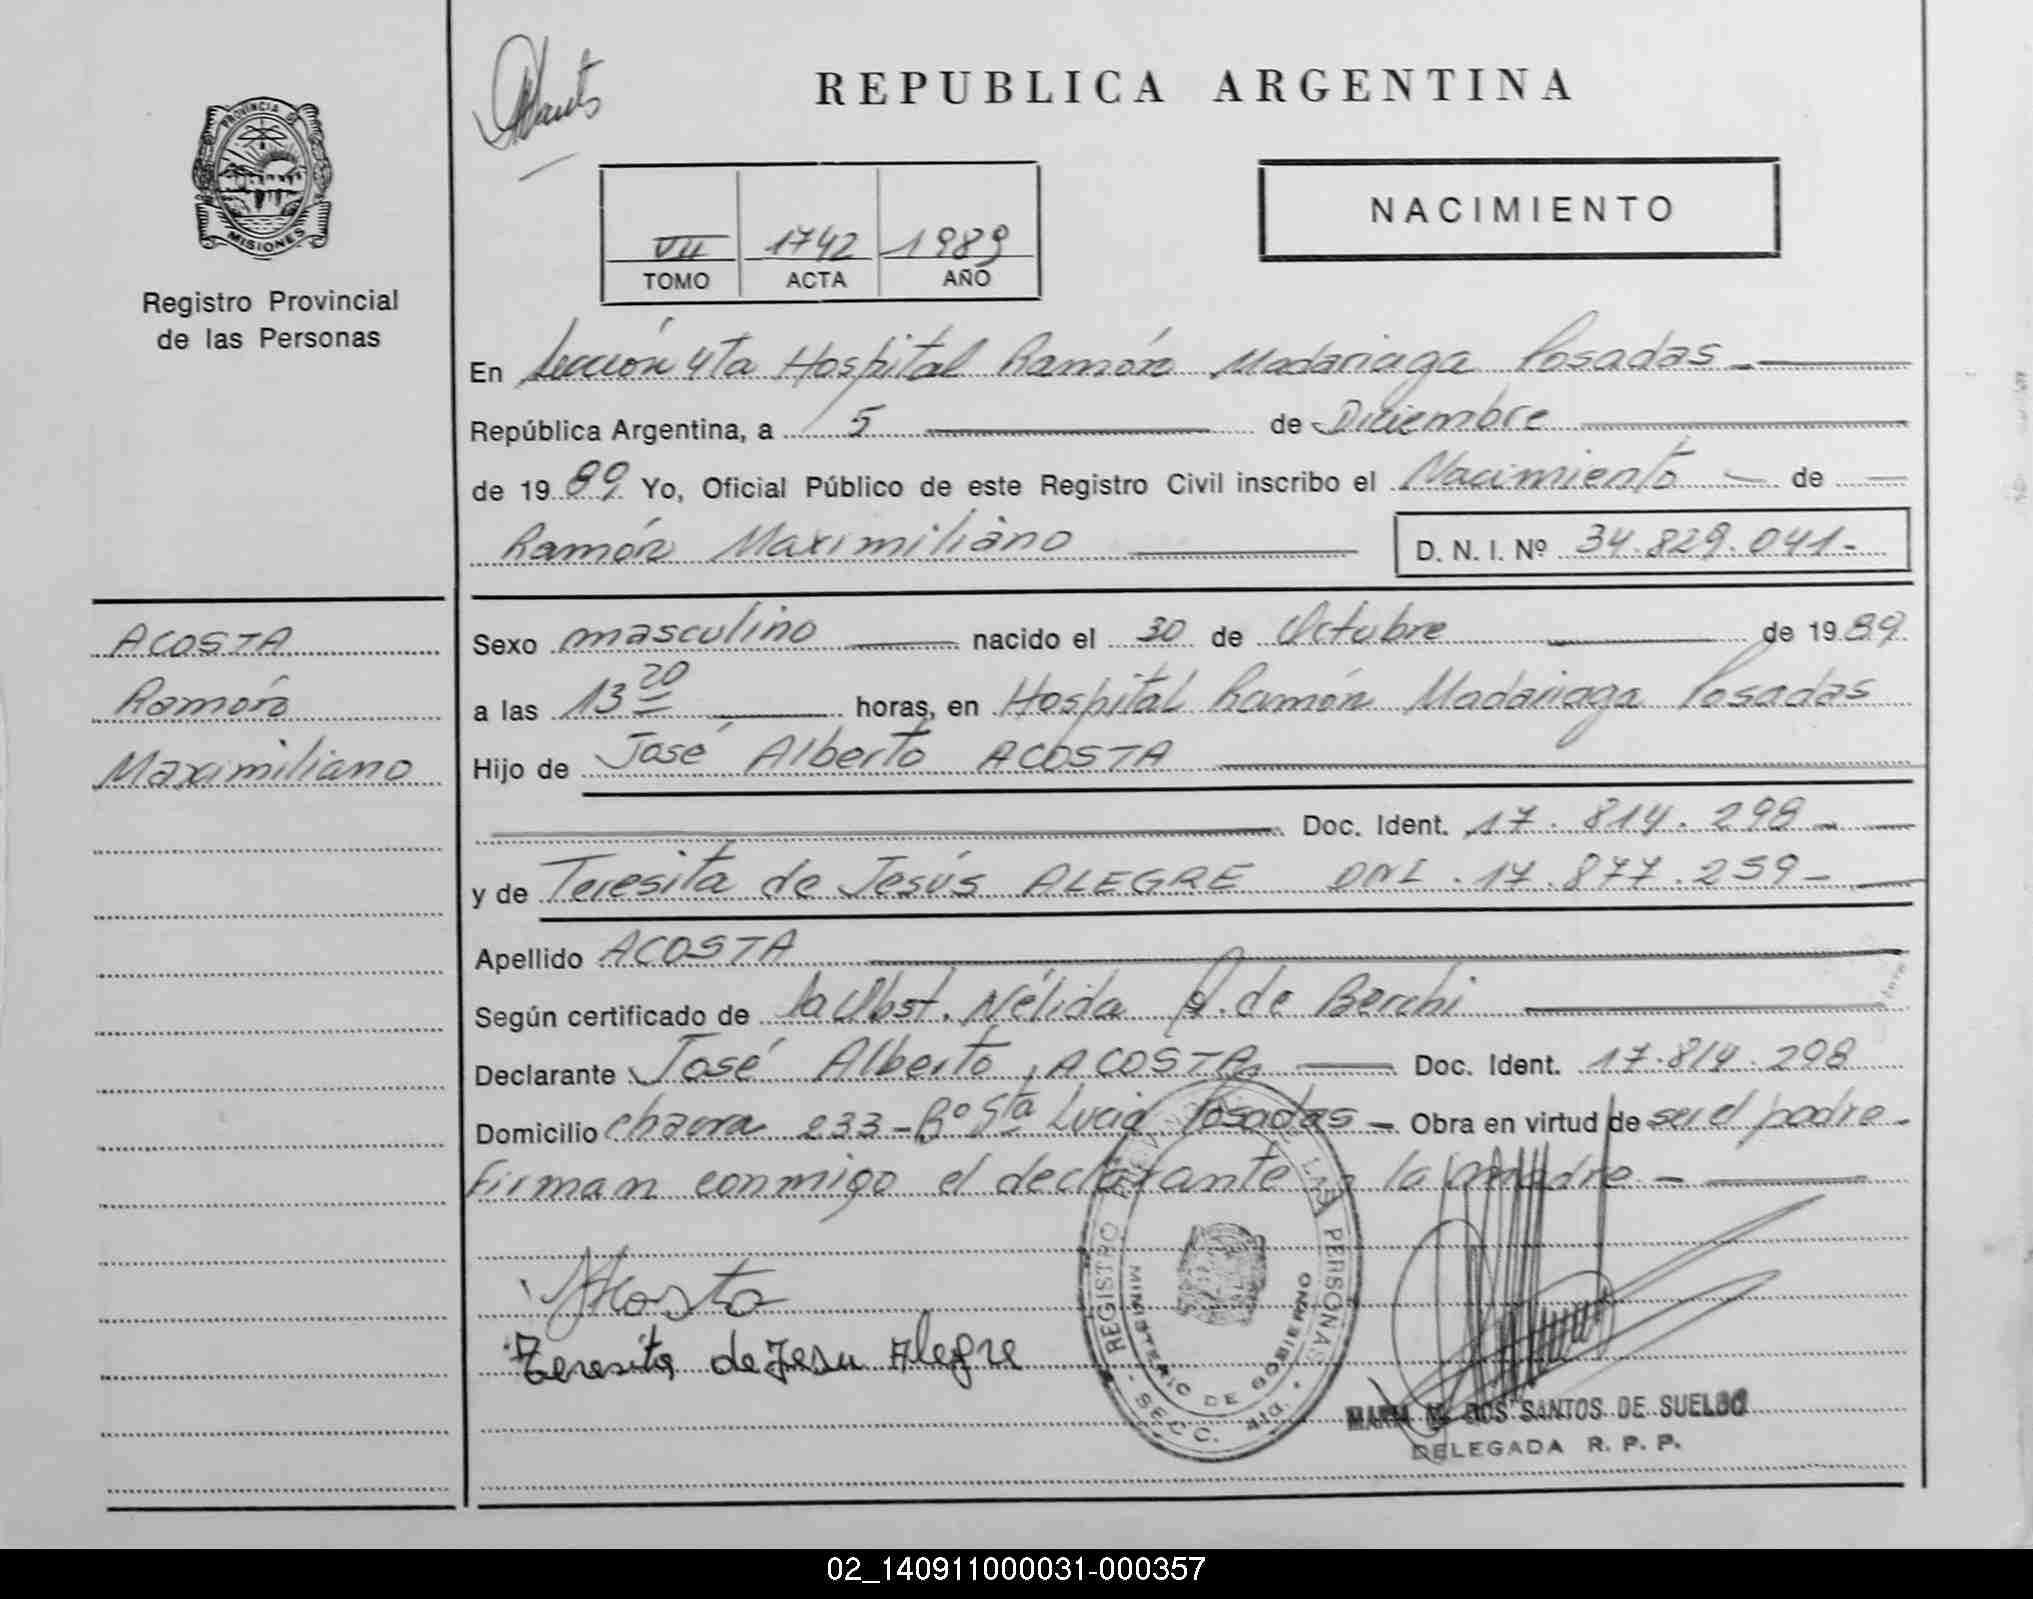 REPUBLICA ARGENTINA
PROVINCIA DE
MISIONES
Registro Provincial
de las Personas
NACIMIENTO
VII 1742 1989
TOMO ACTA AÑO
En Sección 4ta Hospital Ramón Madariaga Posadas
República Argentina, a 5 de Diciembre
de 1989 Yo, Oficial Público de este Registro Civil inscribo el Nacimiento de
Ramón Maximiliano D. N. I. Nº 34.829.041.-
ACOSTA
Ramón
Maximiliano
Sexo masculino nacido el 30 de Octubre de 1989
a las 13 20 horas, en Hospital Ramón Madariaga Posadas
Hijo de José Alberto ACOSTA
Doc. Ident. 17.814.298-
y de Teresita de Jesús ALEGRE DNI.17.877.259-
Apellido ACOSTA
Según certificado de la Obst. Nélida de Berchi
Declarante José Alberto ACOSTA Doc. Ident. 17.814.298
Domicilio chacra 233-Bº Sta Lucia Posadas- Obra en virtud de ser el padre-
Firman conmigo el declarante y la madre-
Acosta
Teresita de Jesu Alegre
REGISTRO PROVINCIAL DE LAS PERSONAS
MINISTERIO DE GOBIERNO
SECC. 4ta.
DOS SANTOS DE SUELDO
DELEGADA R. P. P.
02_140911000031-000357